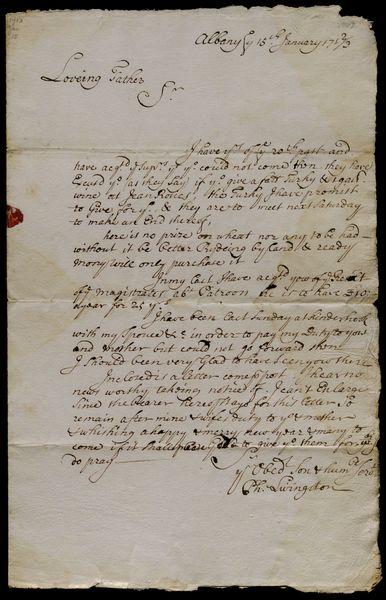 Albany ye 15th January 17 12/3
Loveing Father
Sr
I have yrs of ye 20th past and
have acqd ye supr yt ye could not come then they have
Excusd ye as they say if ye give a fatt Turky & 1 gall
wine at Jean Rosies, the Turky I have promist
to Give for ye & they are to meet next Saturday
to make an End thereof,
here is no prize on wheat nor any to be had
without it be better by land & ready
mony will only purchase it
In my last I have acqd you of ye
of ye magistrates abt Patroon he is to have
a year for
I have been last Sunday at kinderhook
with my Spouse &c in order to pay my Duty to you
and mother but could not go forward
I should been very Glad to have seen you there
Inclosed is a letter come post I hear no
news worthy takeing notice of I can't Enlarge
Since the bearer hereof stays for this Letter So
remain after mine & wife duty to ye & mother
& whishing a happy & merry new Year & many to
come if it shall please God to give ye them for
do pray
Sr
yr Obedt Son & humle Servt
Ph: Livingston